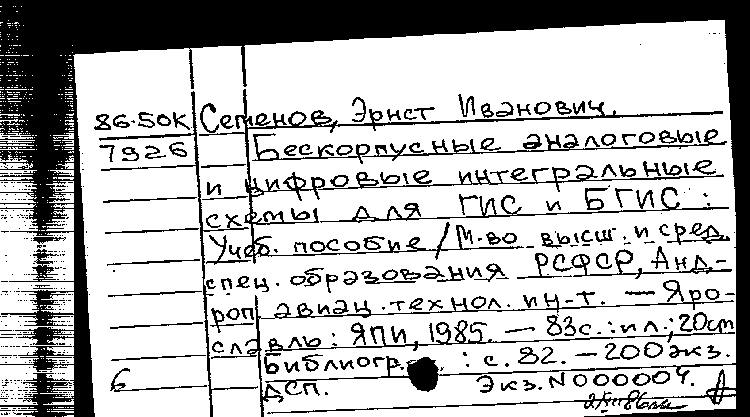 86-50К Семенов, Эрнст Иванович.
7926 Бескорпусные аналоговые
и цифровые интегральные
схемы для ГИС и БГИС :
Учеб. пособие / М-во высш. и сред.
спец. образования РСФСР, Анд-
роп. авиац. технол. ин-т. — Яро-
славль : ЯПИ, 1985. — 83с. : ил.; 20см
Библиогр. : с. 82. — 200 экз.
б ДСП. Экз. N 000004.